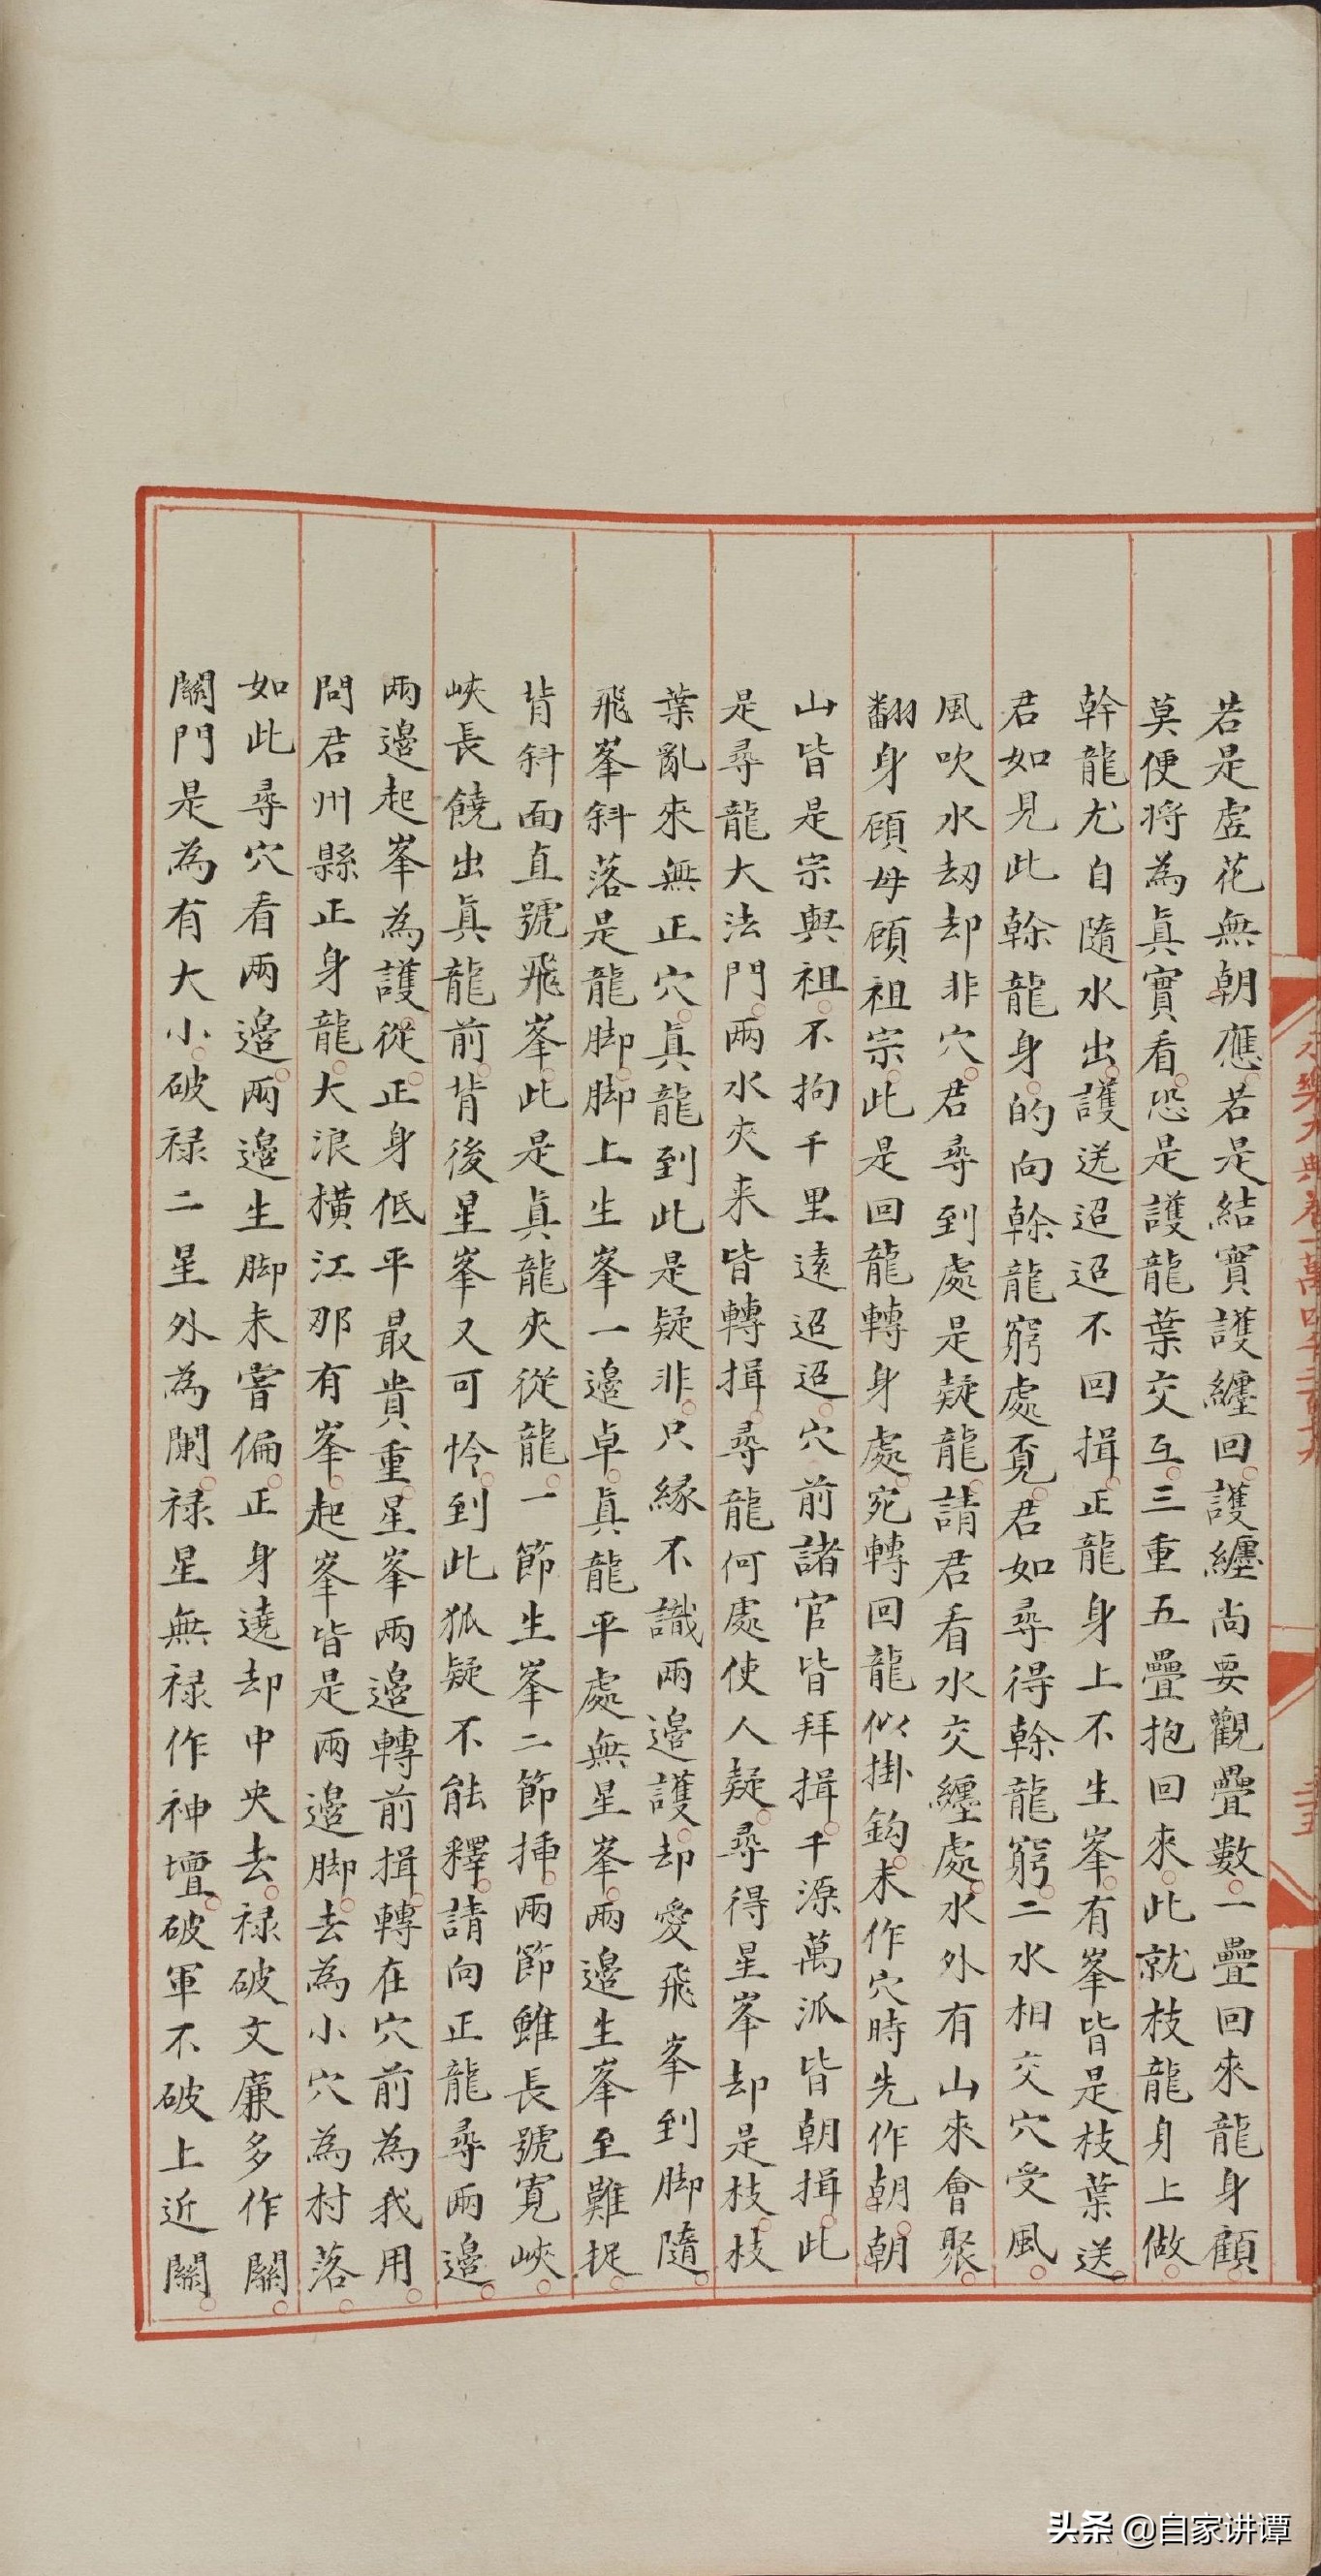 若是虛花無朝應若是結實護纏回護纏尚要觀疊數一疊回來龍身顧
莫便將為眞實看恐是護龍葉交互三重五疊抱回來此就枝龍身上做
幹龍尤自隨水出護送迢迢不回揖正龍身上不生峯有峯皆是枝葉送
君如見此榦龍身的向榦龍窮處覔君如尋得榦龍窮二水相交穴受風
風吹水刼却非穴君尋到處是疑龍請君看水交纏處水外有山來會聚
翻身顧母顧祖宗此是回龍轉身處宛轉回龍似掛鈎未作穴時先作朝朝
山皆是宗與祖不拘千里遠迢迢穴前諸官皆拜揖千源萬派皆朝揖此
是尋龍大法門兩水夾来皆轉揖尋龍何處使人疑尋得星峯却是枝枝
葉亂來無正穴眞龍到此是疑非只緣不識兩邉護却愛飛峯到脚隨
飛峯斜落是龍脚脚上生峯一邉卓眞龍平處無星峯兩邉生峯至難捉
背斜面直號飛峯此是眞龍夾從龍一節生峯二節揷兩節雖長號寬峽
峽長饒出眞龍前背後星峯又可怜到此狐疑不能釋請向正龍尋兩邉
兩邉起峯為護從正身低平最貴重星峯兩邉轉前揖轉在穴前為我用
問君州縣正身龍大浪橫江那有峯起峯皆是兩邉脚去為小穴為村落
如此尋穴看兩邉兩邉生脚未嘗偏正身遶却中央去禄破文廉多作關
關門是為有大小破禄二星外為闌禄星無禄作神壇破軍不破上近關
永樂大典卷一萬四千二百十九
二十五
头条 @自家讲谭